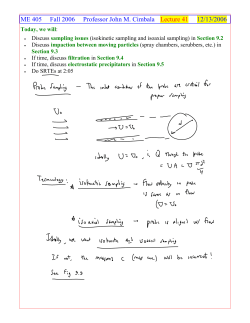 ME 405 Fall 2006 Professor John M. Cimbala Lecture 41 12/13/2006
Today, we will:
• Discuss sampling issues (isokinetic sampling and isoaxial sampling) in Section 9.2
• Discuss impaction between moving particles (spray chambers, scrubbers, etc.) in
Section 9.3
• If time, discuss filtration in Section 9.4
• If time, discuss electrostatic precipitators in Section 9.5
• Do SRTEs at 2:05
Probe Sampling – The inlet conditions of the probe are critical for
proper sampling
U₀
→ U = U₀
d
ideally U = U₀, ∴ Q through the probe
= UA = U πd²/4
Terminology:
* isokinetic sampling – Flow velocity in probe
is same as in flow
(U = U₀)
* isoaxial sampling – probe is aligned w/ flow
Ideally, we want isokinetic and isoaxial sampling
If not, the measured c (mass conc.) will be incorrect!
See Fig 9.9